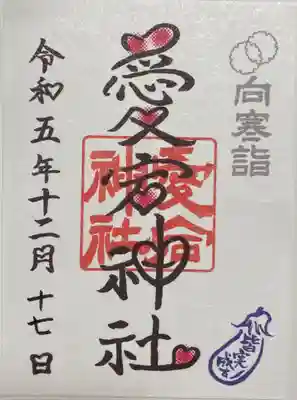 向寒詣
愛宕神社
愛宕
神社
令和五年十二月十七日